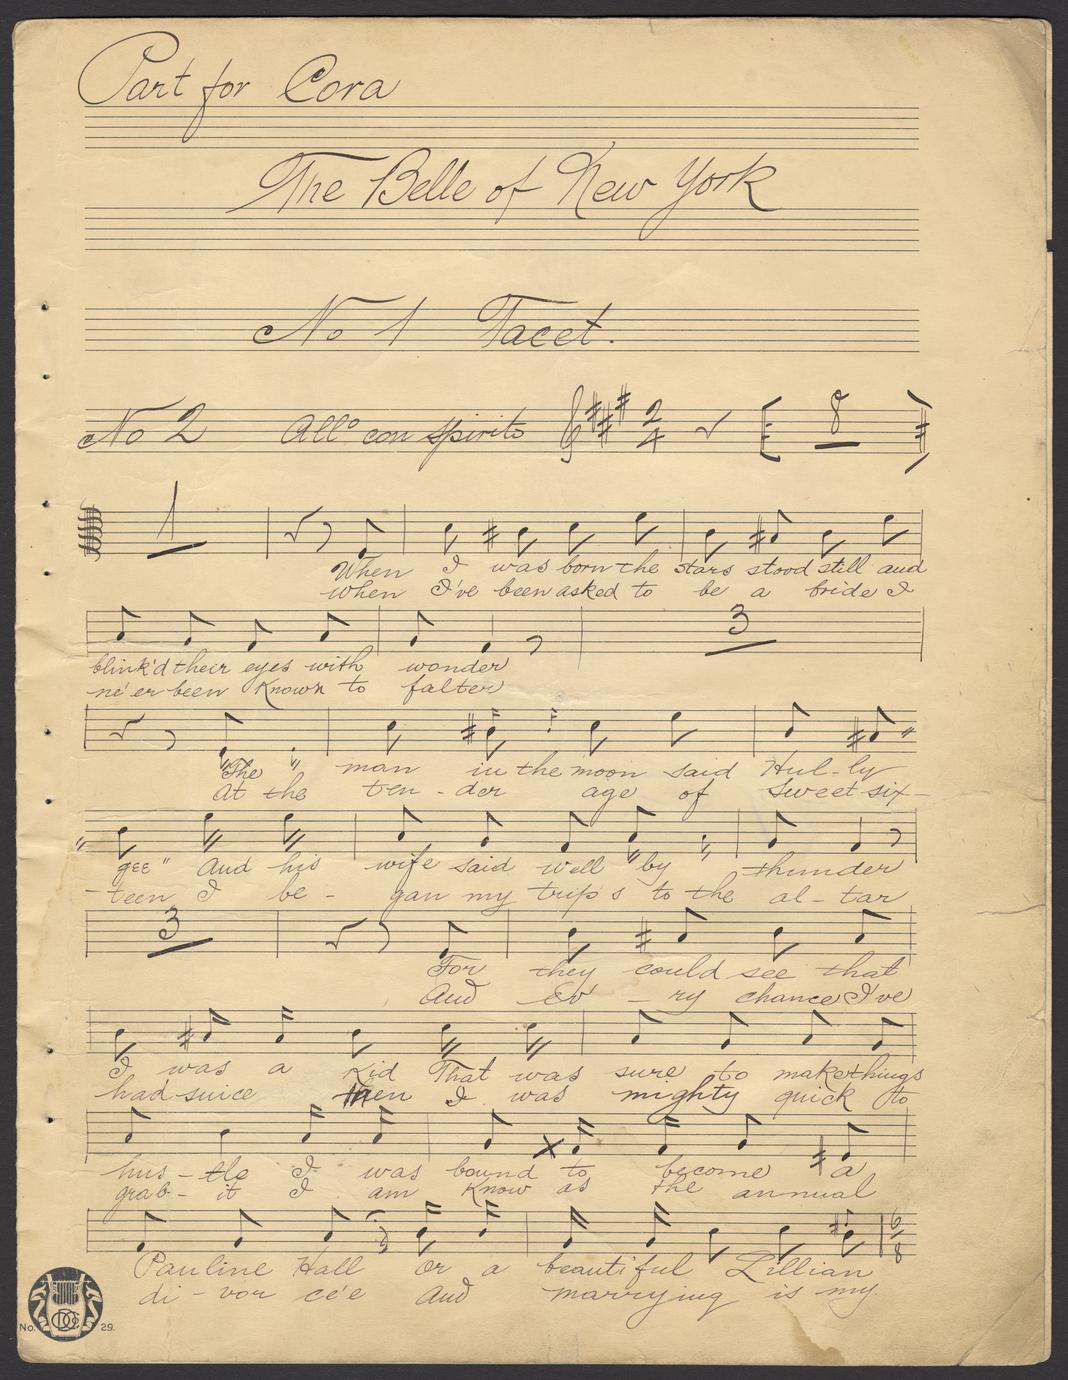 Part for Cora
The Belle of New York
No 1 Tacet.
No 2 Allo con spirito 2 4 8
1
When I was born the stars stood still and
when I've been asked to be a bride I
3
blink'd their eyes with wonder
ne'er been known to falter
"The man in the moon said Hul-ly
At the ten-der age of sweet six-
gee" And his wife said well by thunder
-teen I be- gan my trip's to the al-tar
3
For they could see that
And ev'-ry chance I've
I was a kid That was sure to make things
had suice then I was mighty quick to
hus-tle I was bound to become a
grab-it I am know as the annual
6 8
Pauline Hall or a beautiful Lillian
di-vor cée And marrying is my.
No. DCO 29.